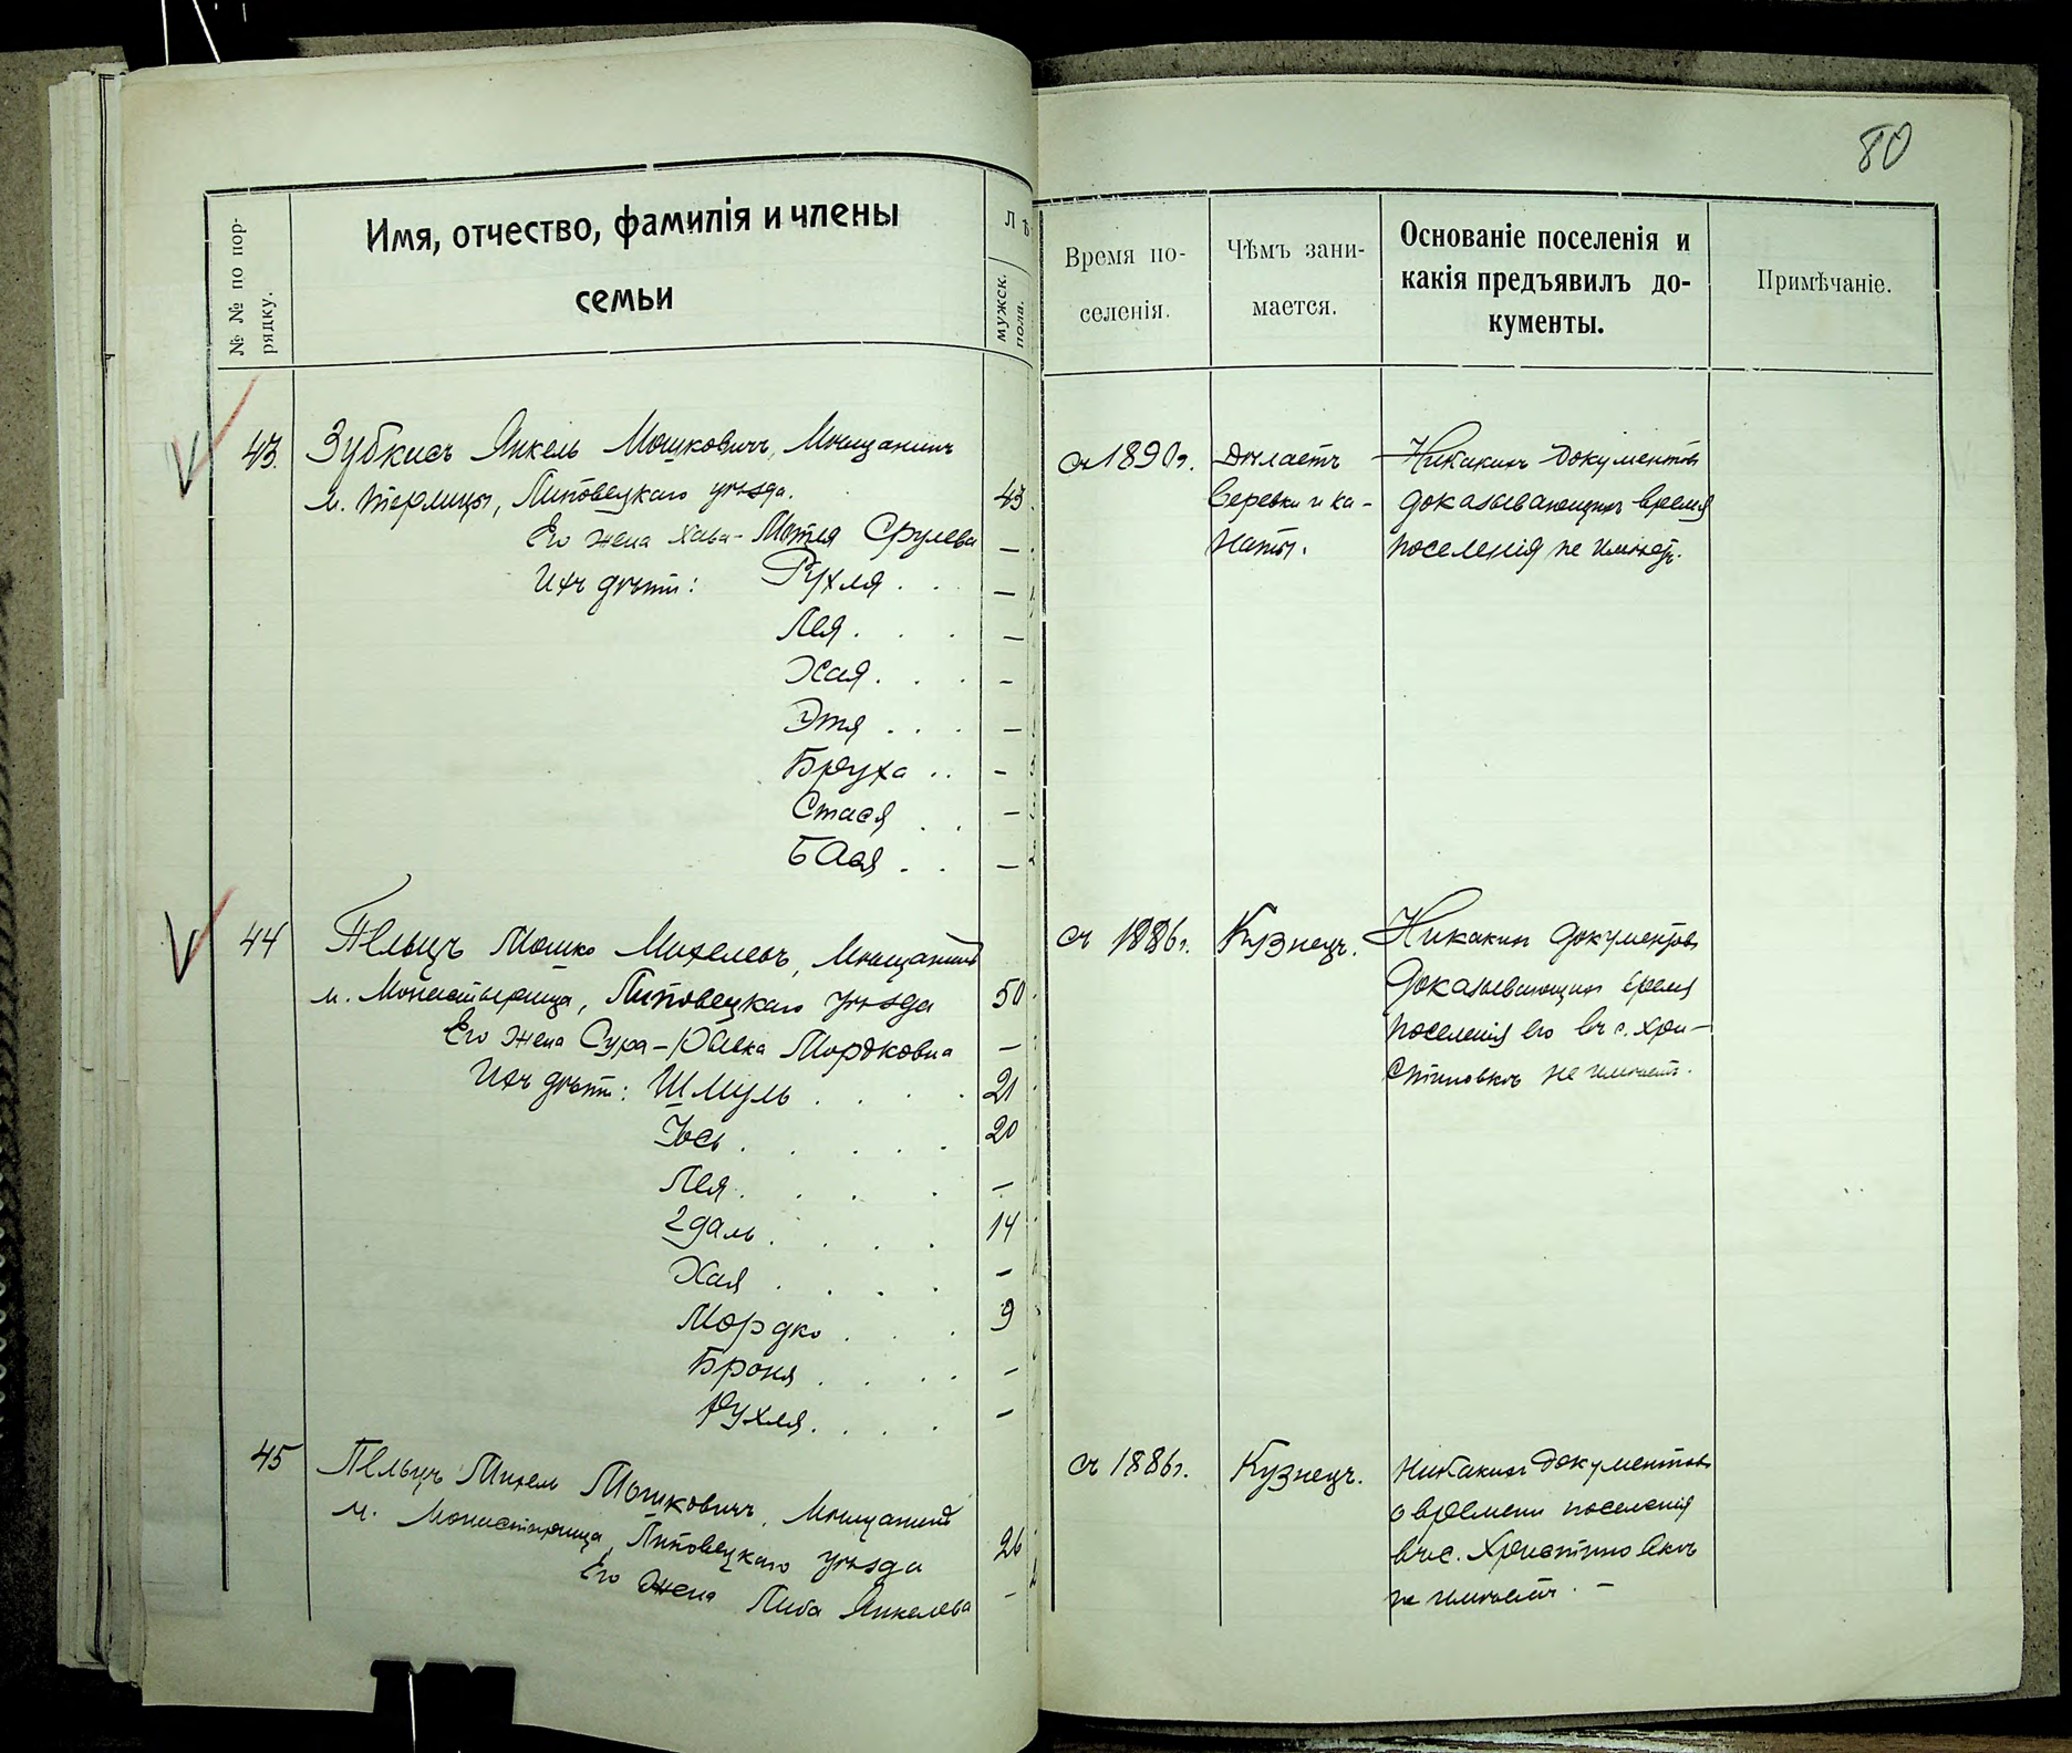 80
№ № по пор-
рядку.
Имя, отчество, фамилія и члены
семьи
Лѣ
мужск.
пола.
Время по-
селенія.
Чѣмъ зани-
мается.
Основаніе поселенія и
какія предъявилъ до-
кументы.
Примѣчаніе.
43. Зубкисъ Янкель Мошковичъ, Мѣщанинъ
м. Терлицы, Липовецкаго уѣзда. 43.
Его жена Хава-Мотля Срулева —
Ихъ дѣти: Рухля . . —
Лея . . . —
Хая . . . —
Этя . . . —
Бруха . . —
Стася . . —
Бася . . —
съ 1890г.
Дѣлаетъ
веревки и ка-
наты.
Никакихъ документовъ
доказывающихъ время
поселенія не имѣетъ.
44 Пельцъ Мошко Михелевъ, Мѣщанинъ
м. Монастырища, Липовецкаго уѣзда 50
Его жена Сура- Мордковна —
Ихъ дѣти: Шмуль . . . . 21
Іось . . . . . 20
Лея . . . . —
Эдаль . . . . 14
Хая . . . . —
Мордко . . . 9
Броня . . . . —
Рухля . . . . —
съ 1886г.
Кузнецъ.
Никакихъ документовъ
доказывающихъ время
поселенія его въ с. Хри-
стиновкѣ не имѣетъ.
45 Пельцъ Михель Мошковичъ, Мѣщанинъ
м. Монастырища, Липовецкаго уѣзда 26
Его жена Либа Янкелева —
съ 1886г.
Кузнецъ.
Никакихъ документовъ
о времени поселенія
въ с. Христиновкѣ
не имѣетъ. —